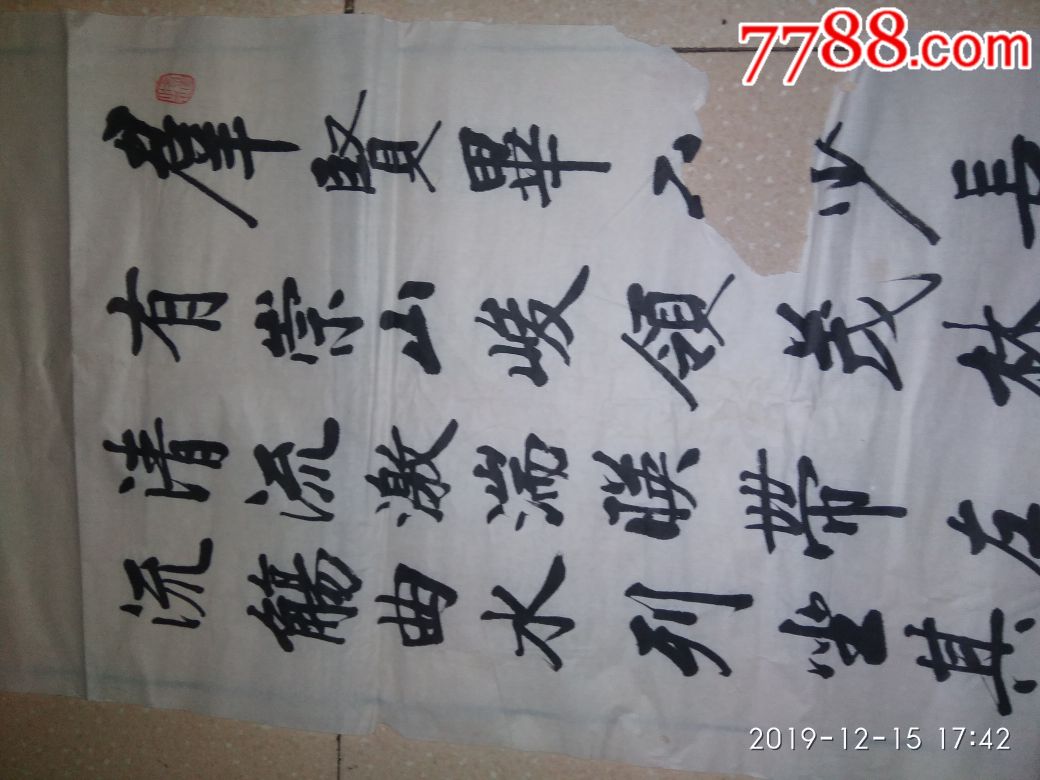 羣賢畢少長
有崇山峻領茂林
清流激湍暎帶左
流觴曲水列坐其
7788.com
2019-12-15 17:42